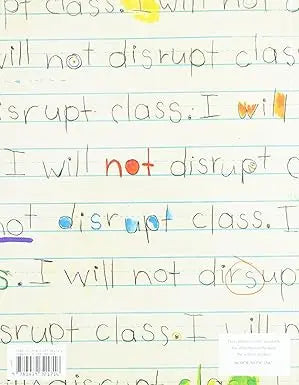 pt class. I will not
will not disrupt class
disrupt class. I will
I will not disrupt c
not disrupt class. I
s. I will not dirsup
isrupt class. I will n
disrupt class